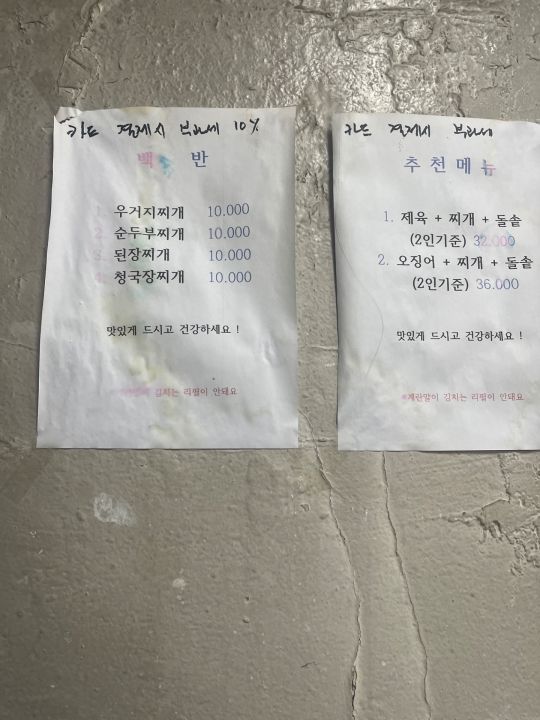 카드 결제시 부과세 10%
백 반
1. 우거지찌개 10.000
2. 순두부찌개 10.000
3. 된장찌개 10.000
4. 청국장찌개 10.000
맛있게 드시고 건강하세요 !
김치는 리필이 안돼요
카드 결제시 부과세
추천메뉴
1. 제육 + 찌개 + 돌솥
(2인기준) 32.000
2. 오징어 + 찌개 + 돌솥
(2인기준) 36.000
맛있게 드시고 건강하세요 !
*계란말이 김치는 리필이 안돼요